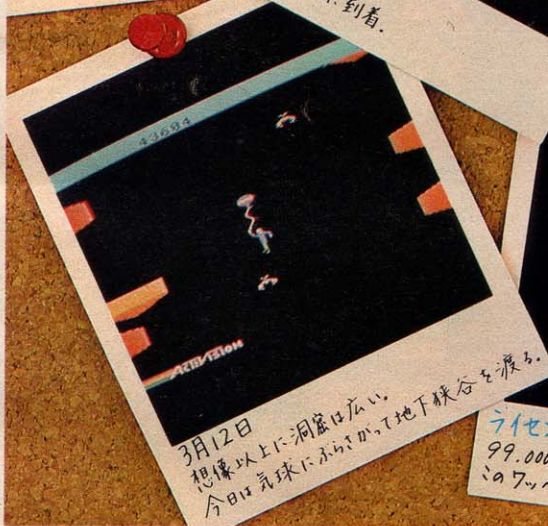 到着.
43684
ACTIVISION
3月12日
想像以上に洞窟は広い。
今日は気球にぶらさがって地下峡谷を渡る。
ライセン
99.000
このワッペ